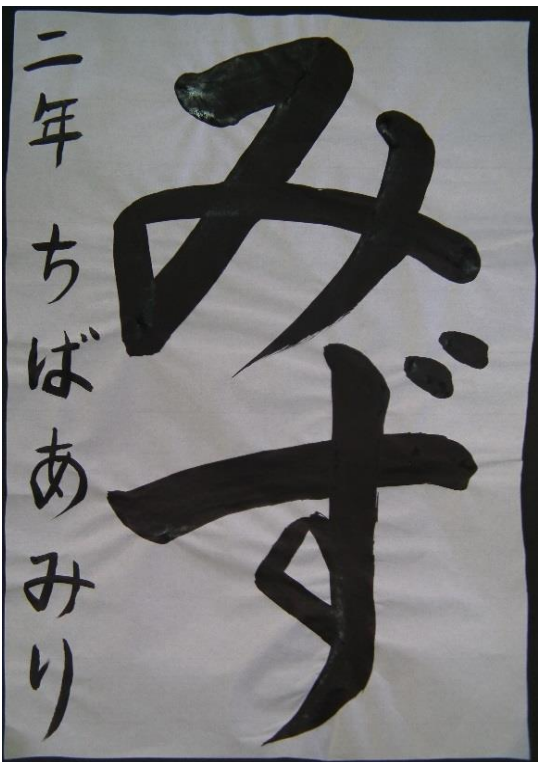 みず
二年 ちばあみり